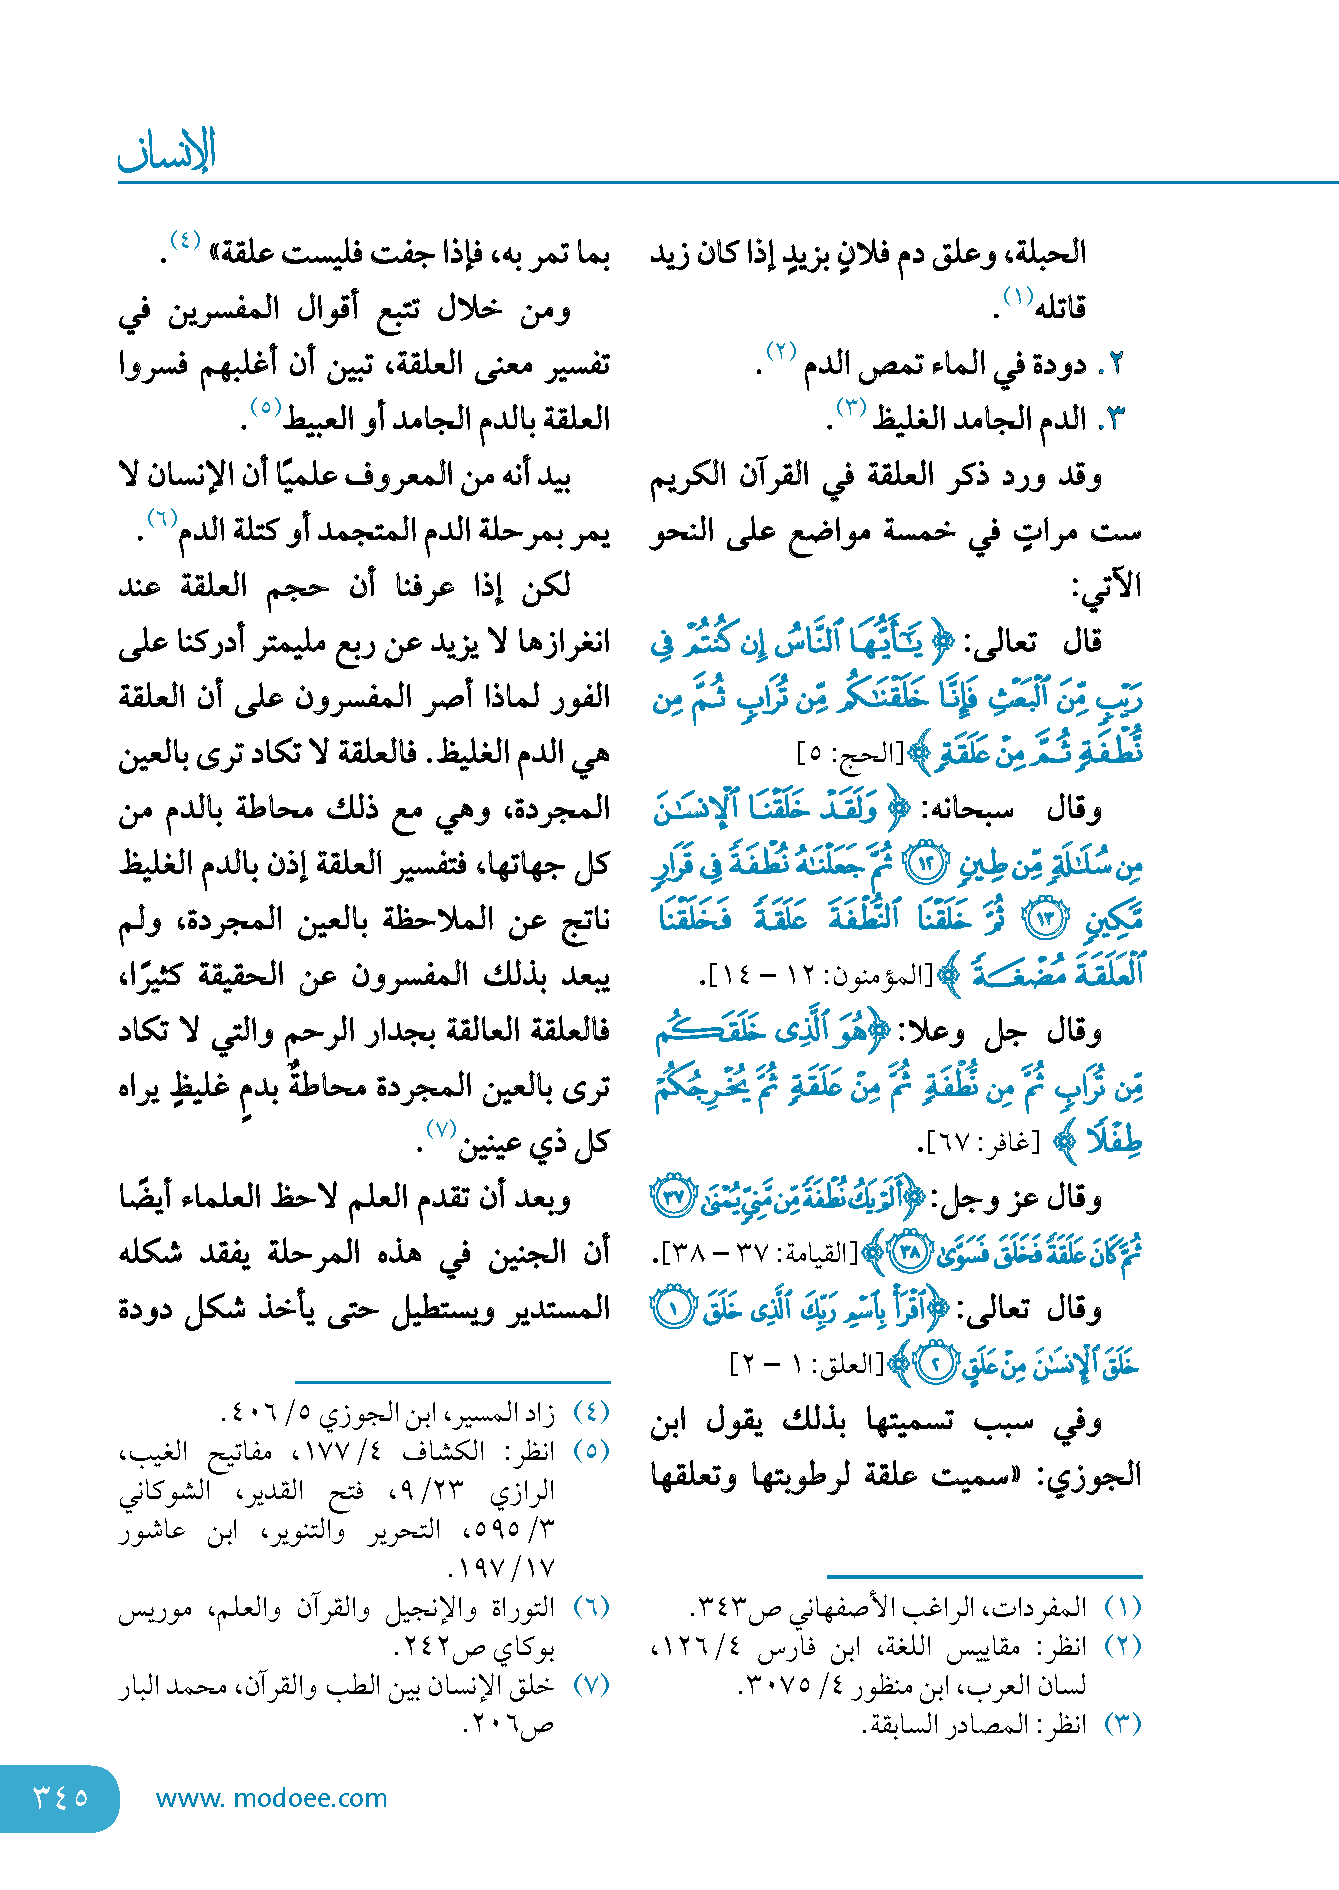 الإنسان
الحبلة، وعلق دم فلانٍ بزيدٍ إذا كان زيد
قاتله(١).
٢. دودة في الماء تمص الدم (٢).
٣. الدم الجامد الغليظ (٣).
وقد ورد ذكر العلقة في القرآن الكريم
ست مراتٍ في خمسة مواضع على النحو
الآتي:
قال تعالى: ﴿يَٰٓأَيُّهَا ٱلنَّاسُ إِن كُنتُمْ فِى
رَيْبٍ مِّنَ ٱلْبَعْثِ فَإِنَّا خَلَقْنَٰكُم مِّن تُرَابٍ ثُمَّ مِن
نُّطْفَةٍ ثُمَّ مِنْ عَلَقَةٍ﴾ [الحج: ٥]
وقال سبحانه: ﴿وَلَقَدْ خَلَقْنَا ٱلْإِنسَٰنَ
مِن سُلَٰلَةٍ مِّن طِينٍ ١٢ ثُمَّ جَعَلْنَٰهُ نُطْفَةً فِى قَرَارٍ
مَّكِينٍ ١٣ ثُمَّ خَلَقْنَا ٱلنُّطْفَةَ عَلَقَةً فَخَلَقْنَا
ٱلْعَلَقَةَ مُضْغَةً﴾ [المؤمنون: ١٢ - ١٤].
وقال جل وعلا: ﴿هُوَ ٱلَّذِى خَلَقَكُم
مِّن تُرَابٍ ثُمَّ مِن نُّطْفَةٍ ثُمَّ مِنْ عَلَقَةٍ ثُمَّ يُخْرِجُكُمْ
طِفْلًا﴾ [غافر: ٦٧].
وقال عز وجل: ﴿أَلَمْ يَكُ نُطْفَةً مِّن مَّنِىٍّ يُمْنَىٰ ٣٧
ثُمَّ كَانَ عَلَقَةً فَخَلَقَ فَسَوَّىٰ ٣٨﴾ [القيامة: ٣٧ - ٣٨].
وقال تعالى: ﴿ٱقْرَأْ بِٱسْمِ رَبِّكَ ٱلَّذِى خَلَقَ ١
خَلَقَ ٱلْإِنسَٰنَ مِنْ عَلَقٍ ٢﴾ [العلق: ١ - ٢]
وفي سبب تسميتها بذلك يقول ابن
الجوزي: «سميت علقة لرطوبتها وتعلقها
(١) المفردات، الراغب الأصفهاني ص٣٤٣.
(٢) انظر: مقاييس اللغة، ابن فارس ٤/ ١٢٦،
لسان العرب، ابن منظور ٤/ ٣٠٧٥.
(٣) انظر: المصادر السابقة.
بما تمر به، فإذا جفت فليست علقة» (٤).
ومن خلال تتبع أقوال المفسرين في
تفسير معنى العلقة، تبين أن أغلبهم فسروا
العلقة بالدم الجامد أو العبيط(٥).
بيد أنه من المعروف علميًا أن الإنسان لا
يمر بمرحلة الدم المتجمد أو كتلة الدم(٦).
لكن إذا عرفنا أن حجم العلقة عند
انغرازها لا يزيد عن ربع ملميتر أدركنا على
الفور لماذا أصر المفسرون على أن العلقة
هي الدم الغليظ. فالعلقة لا تكاد ترى بالعين
المجردة، وهي مع ذلك محاطة بالدم من
كل جهاتها، فتفسير العلقة إذن بالدم الغليظ
ناتج عن الملاحظة بالعين المجردة، ولم
يبعد بذلك المفسرون عن الحقيقة كثيرًا،
فالعلقة العالقة بجدار الرحم والتي لا تكاد
ترى بالعين المجردة محاطةٌ بدمٍ غليظٍ يراه
كل ذي عينين(٧).
وبعد أن تقدم العلم لاحظ العلماء أيضًا
أن الجنين في هذه المرحلة يفقد شكله
المستدير ويستطيل حتى يأخذ شكل دودة
(٤) زاد المسير، ابن الجوزي ٥/ ٤٠٦.
(٥) انظر: الكشاف ٤/ ١٧٧، مفاتيح الغيب،
الرازي ٢٣/ ٩، فتح القدير، الشوكاني
٣/ ٥٩٥، التحرير والتنوير، ابن عاشور
١٧/ ١٩٧.
(٦) التوراة والإنجيل والقرآن والعلم، موريس
بوكاي ص٢٤٢.
(٧) خلق الإنسان بين الطب والقرآن، محمد البار
ص٢٠٦.
www. modoee.com
٣٤٥